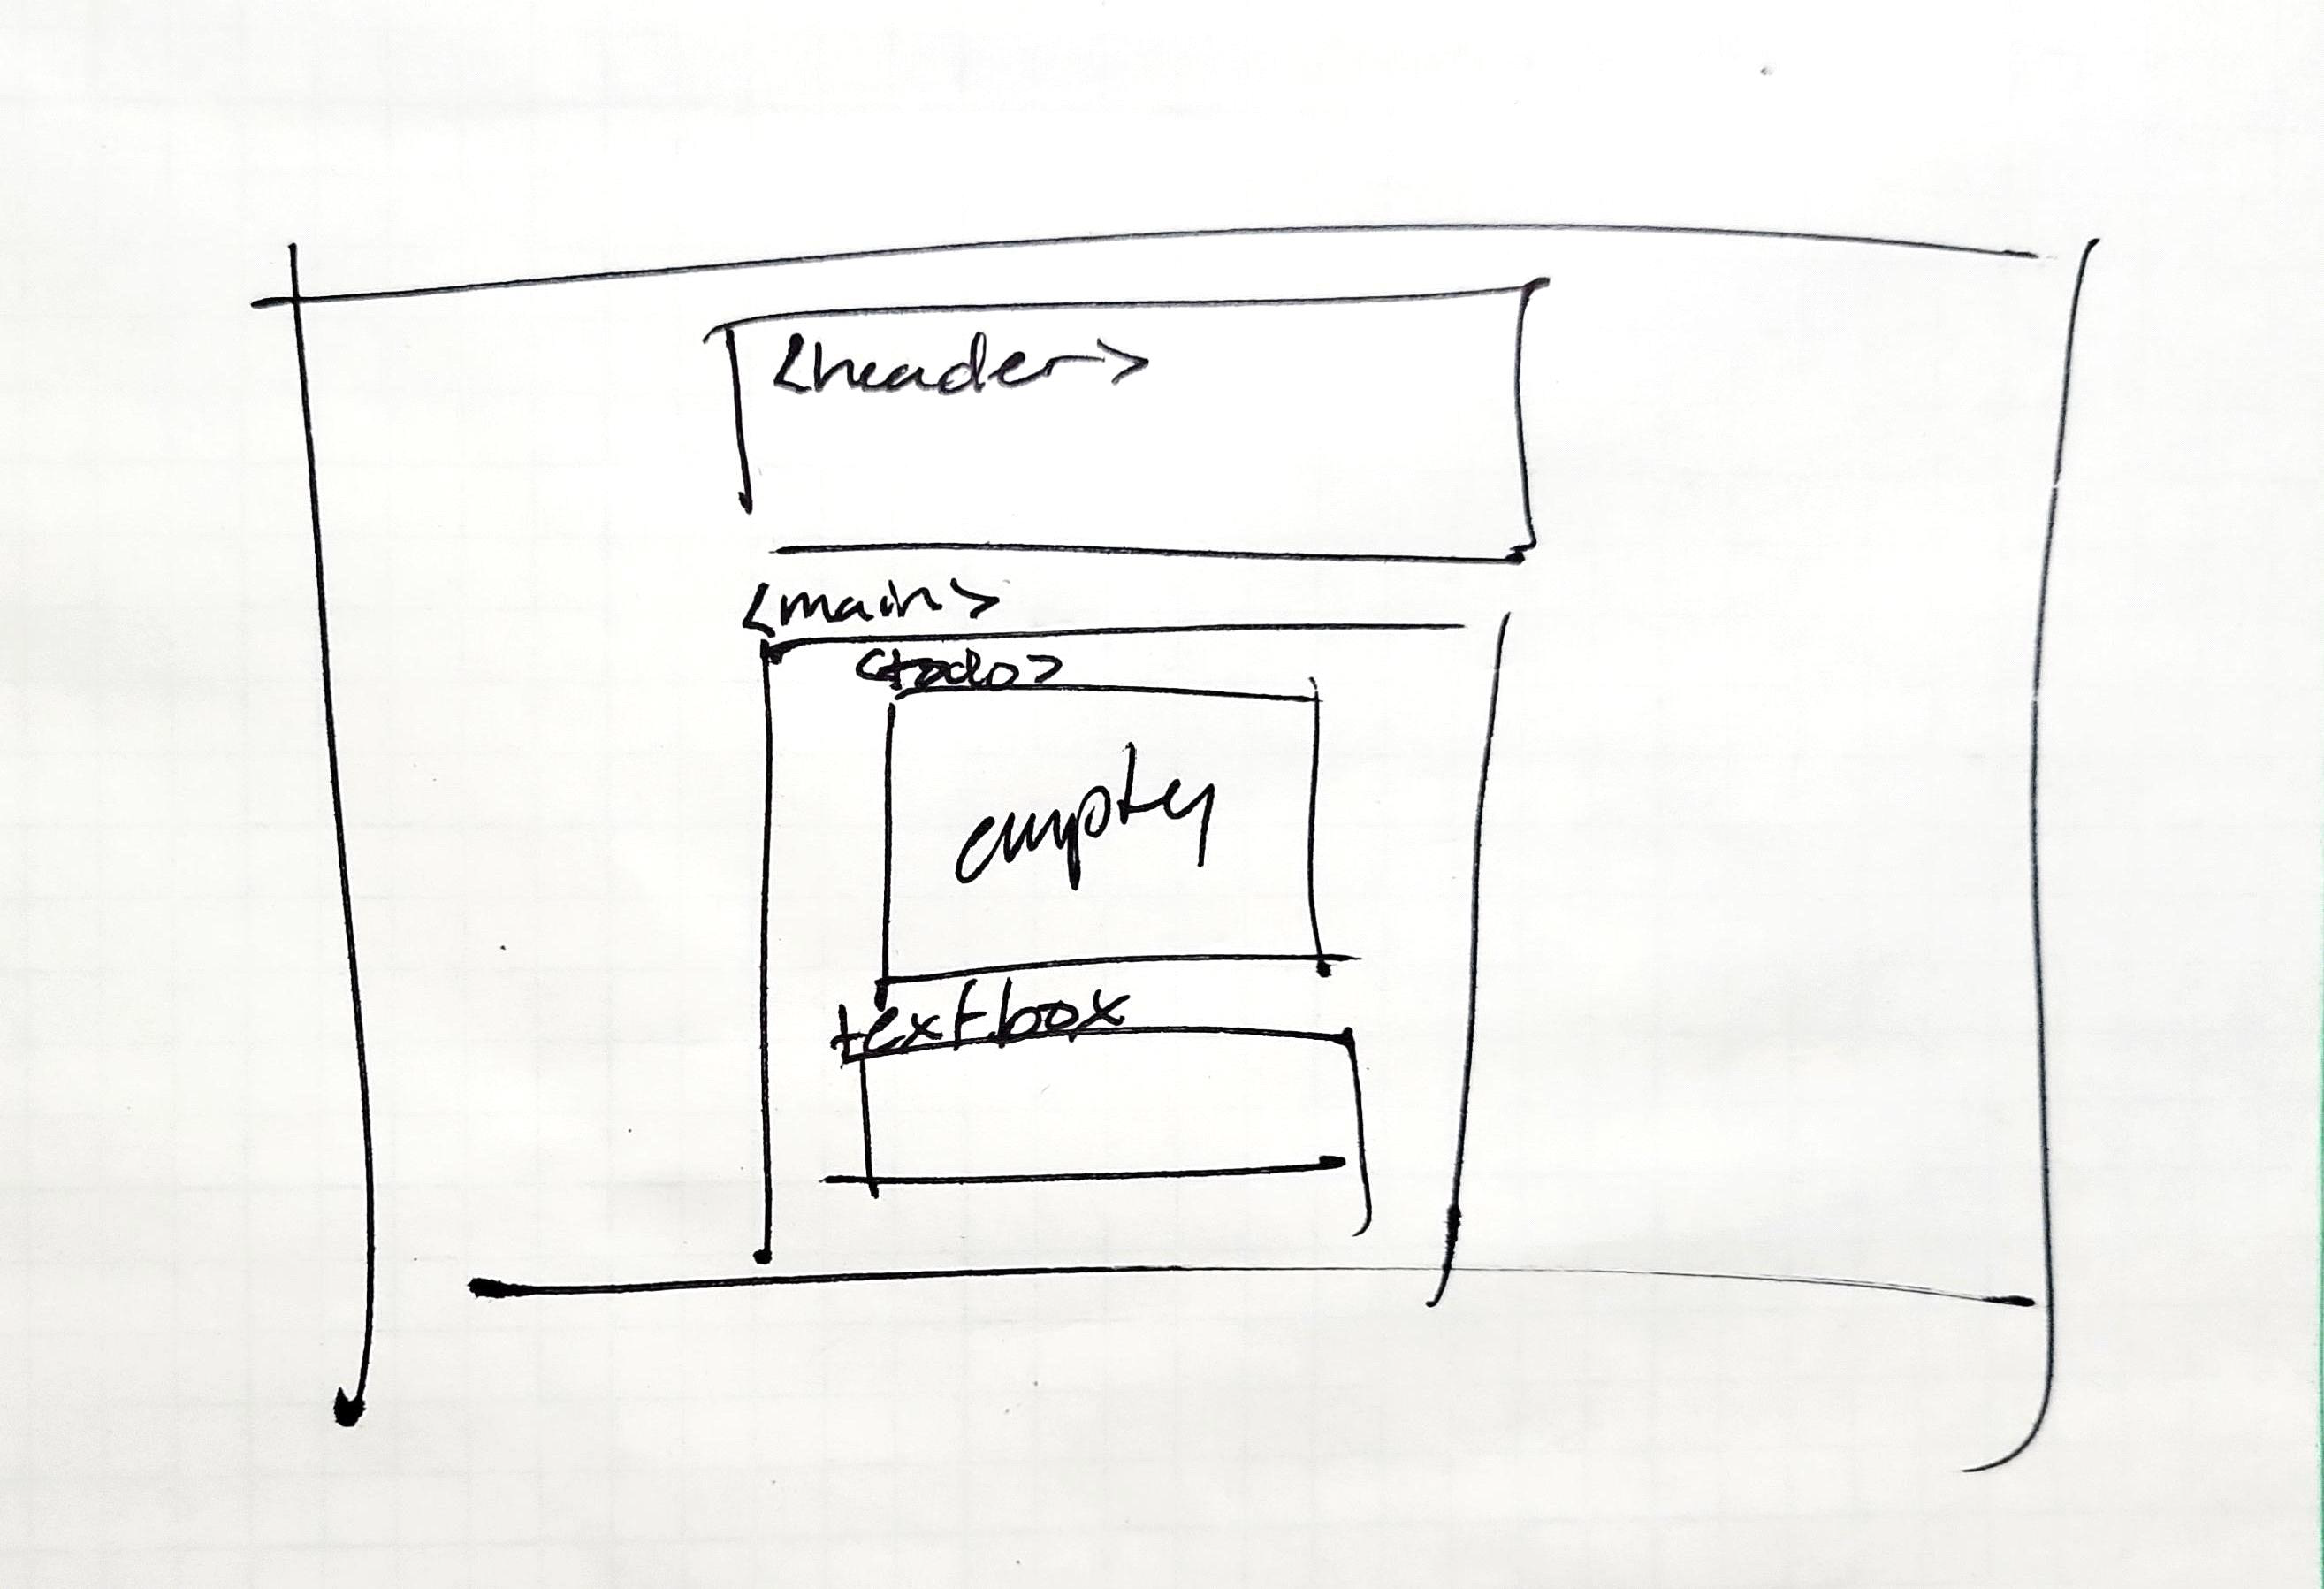 <header>
<main>
<todo>
empty
textbox